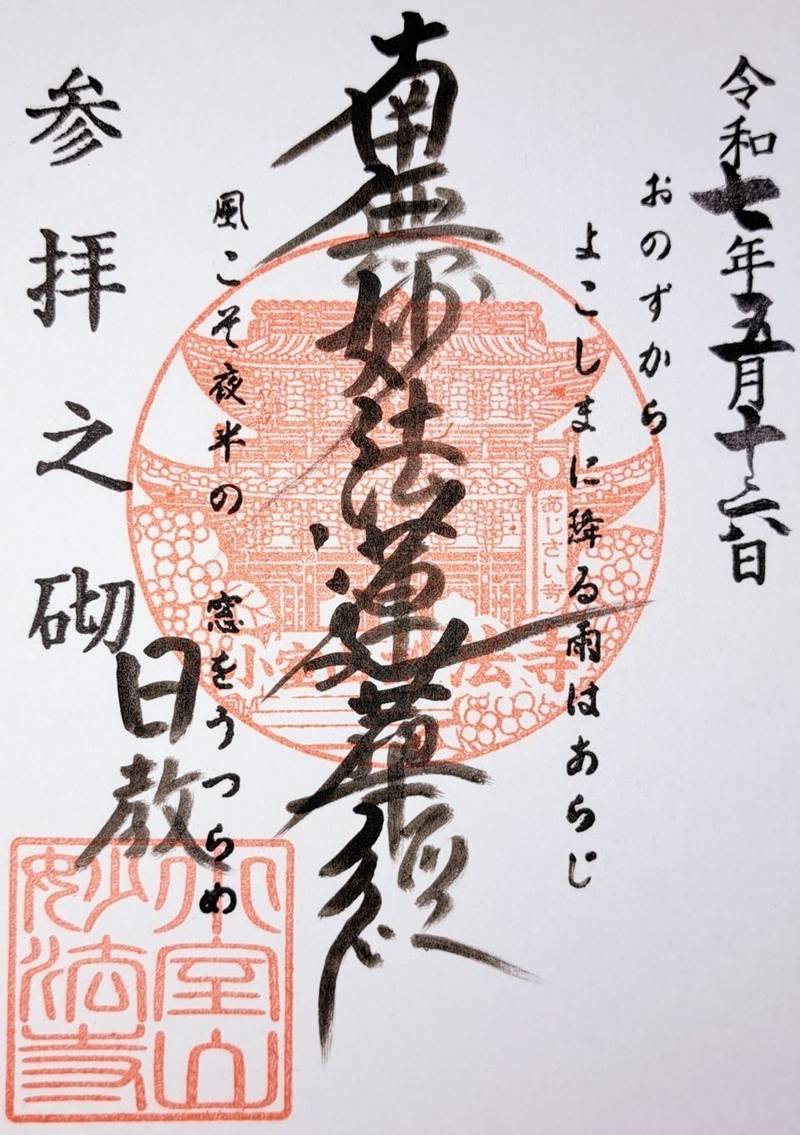 令和七年五月十六日
おのずから
よこしまに降る雨はあらじ
南無妙法蓮華經
風こそ夜半の 窓をうつらめ
参拝之砌
日教
あじさい寺
小室山妙法寺
小室山
妙法寺